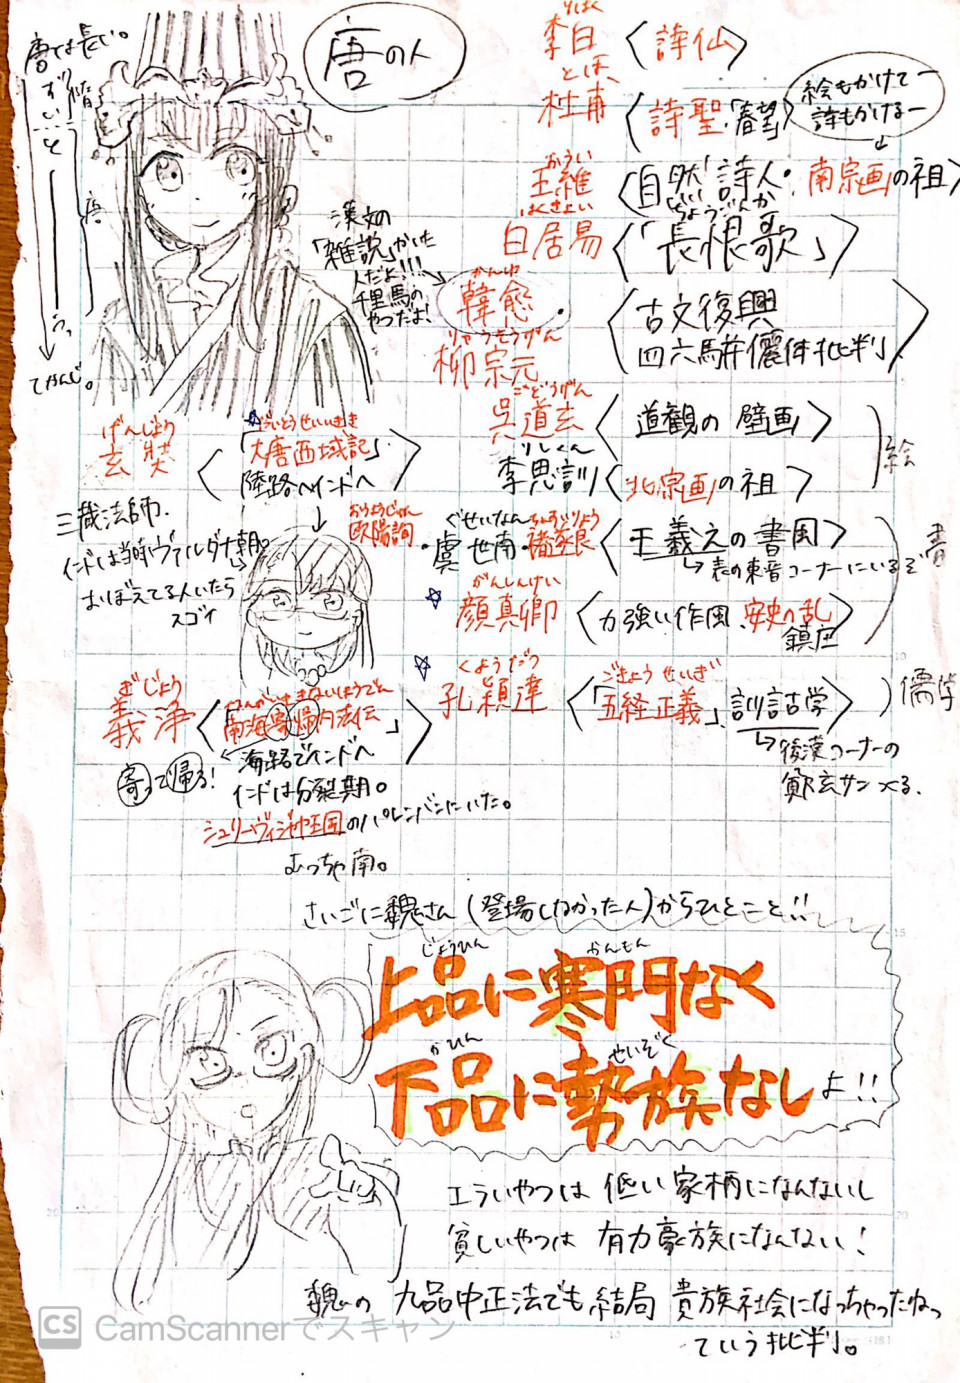 唐の人
唐ては長い。
ずいと
隋
唐
う。
てかんじ。
りはく
李白〈詩仙〉
とほ
杜甫〈詩聖.「春望」〉
絵もかけて
詩もかけるー
おうい
王維〈自然詩人・南宗画の祖〉
はくきょい
白居易〈「長恨歌」〉
ちょうごんか
漢文の
「雑説」かいた
人だよ!!!
千里馬の
やつだよ!
かんゆ
韓愈
りゅうそうげん
柳宗元
古文復興
四六駢儷体批判
ごどうげん
呉道玄〈道観の壁画〉
りしくん
李思訓〈北宗画の祖〉
絵
げんじょう
玄奘
だいとうせいいきき
「大唐西域記」
陸路でインドへ
三蔵法師.
インドは当時ヴァルダナ朝。
おぼえてる人いたら
スゴイ
おうようじゅん ぐせいなん ちょすいりょう
欧陽詢・虞世南・褚遂良〈王羲之の書風〉
↳表の東晋コーナーにいるぞ
書
がんしんけい
顔真卿〈力強い作風、安史の乱
鎮圧〉
くようだつ
孔穎達
ごきょうせいぎ
〈「五経正義」、訓詁学〉
儒学
↳後漢コーナーの
鄭玄サンつくる.
ぎじょう
義浄
なんかいききないほうでん
「南海寄帰内法伝」
海路でインドへ
寄って帰る!
インドは分裂期。
シュリーヴィジャヤ王国のパレンバンにいた。
むっちゃ南。
さいごに魏さん(登場しなかった人)からひとこと!!
じょうひん かんもん
上品に寒門なく
かひん せいぞく
下品に勢族なしよ!!
エラいやつは低い家柄になんないし
貧しいやつは有力豪族になんない!
魏の九品中正法でも結局貴族社会になっちゃったねっ
ていう批判。
CS CamScannerでスキャン